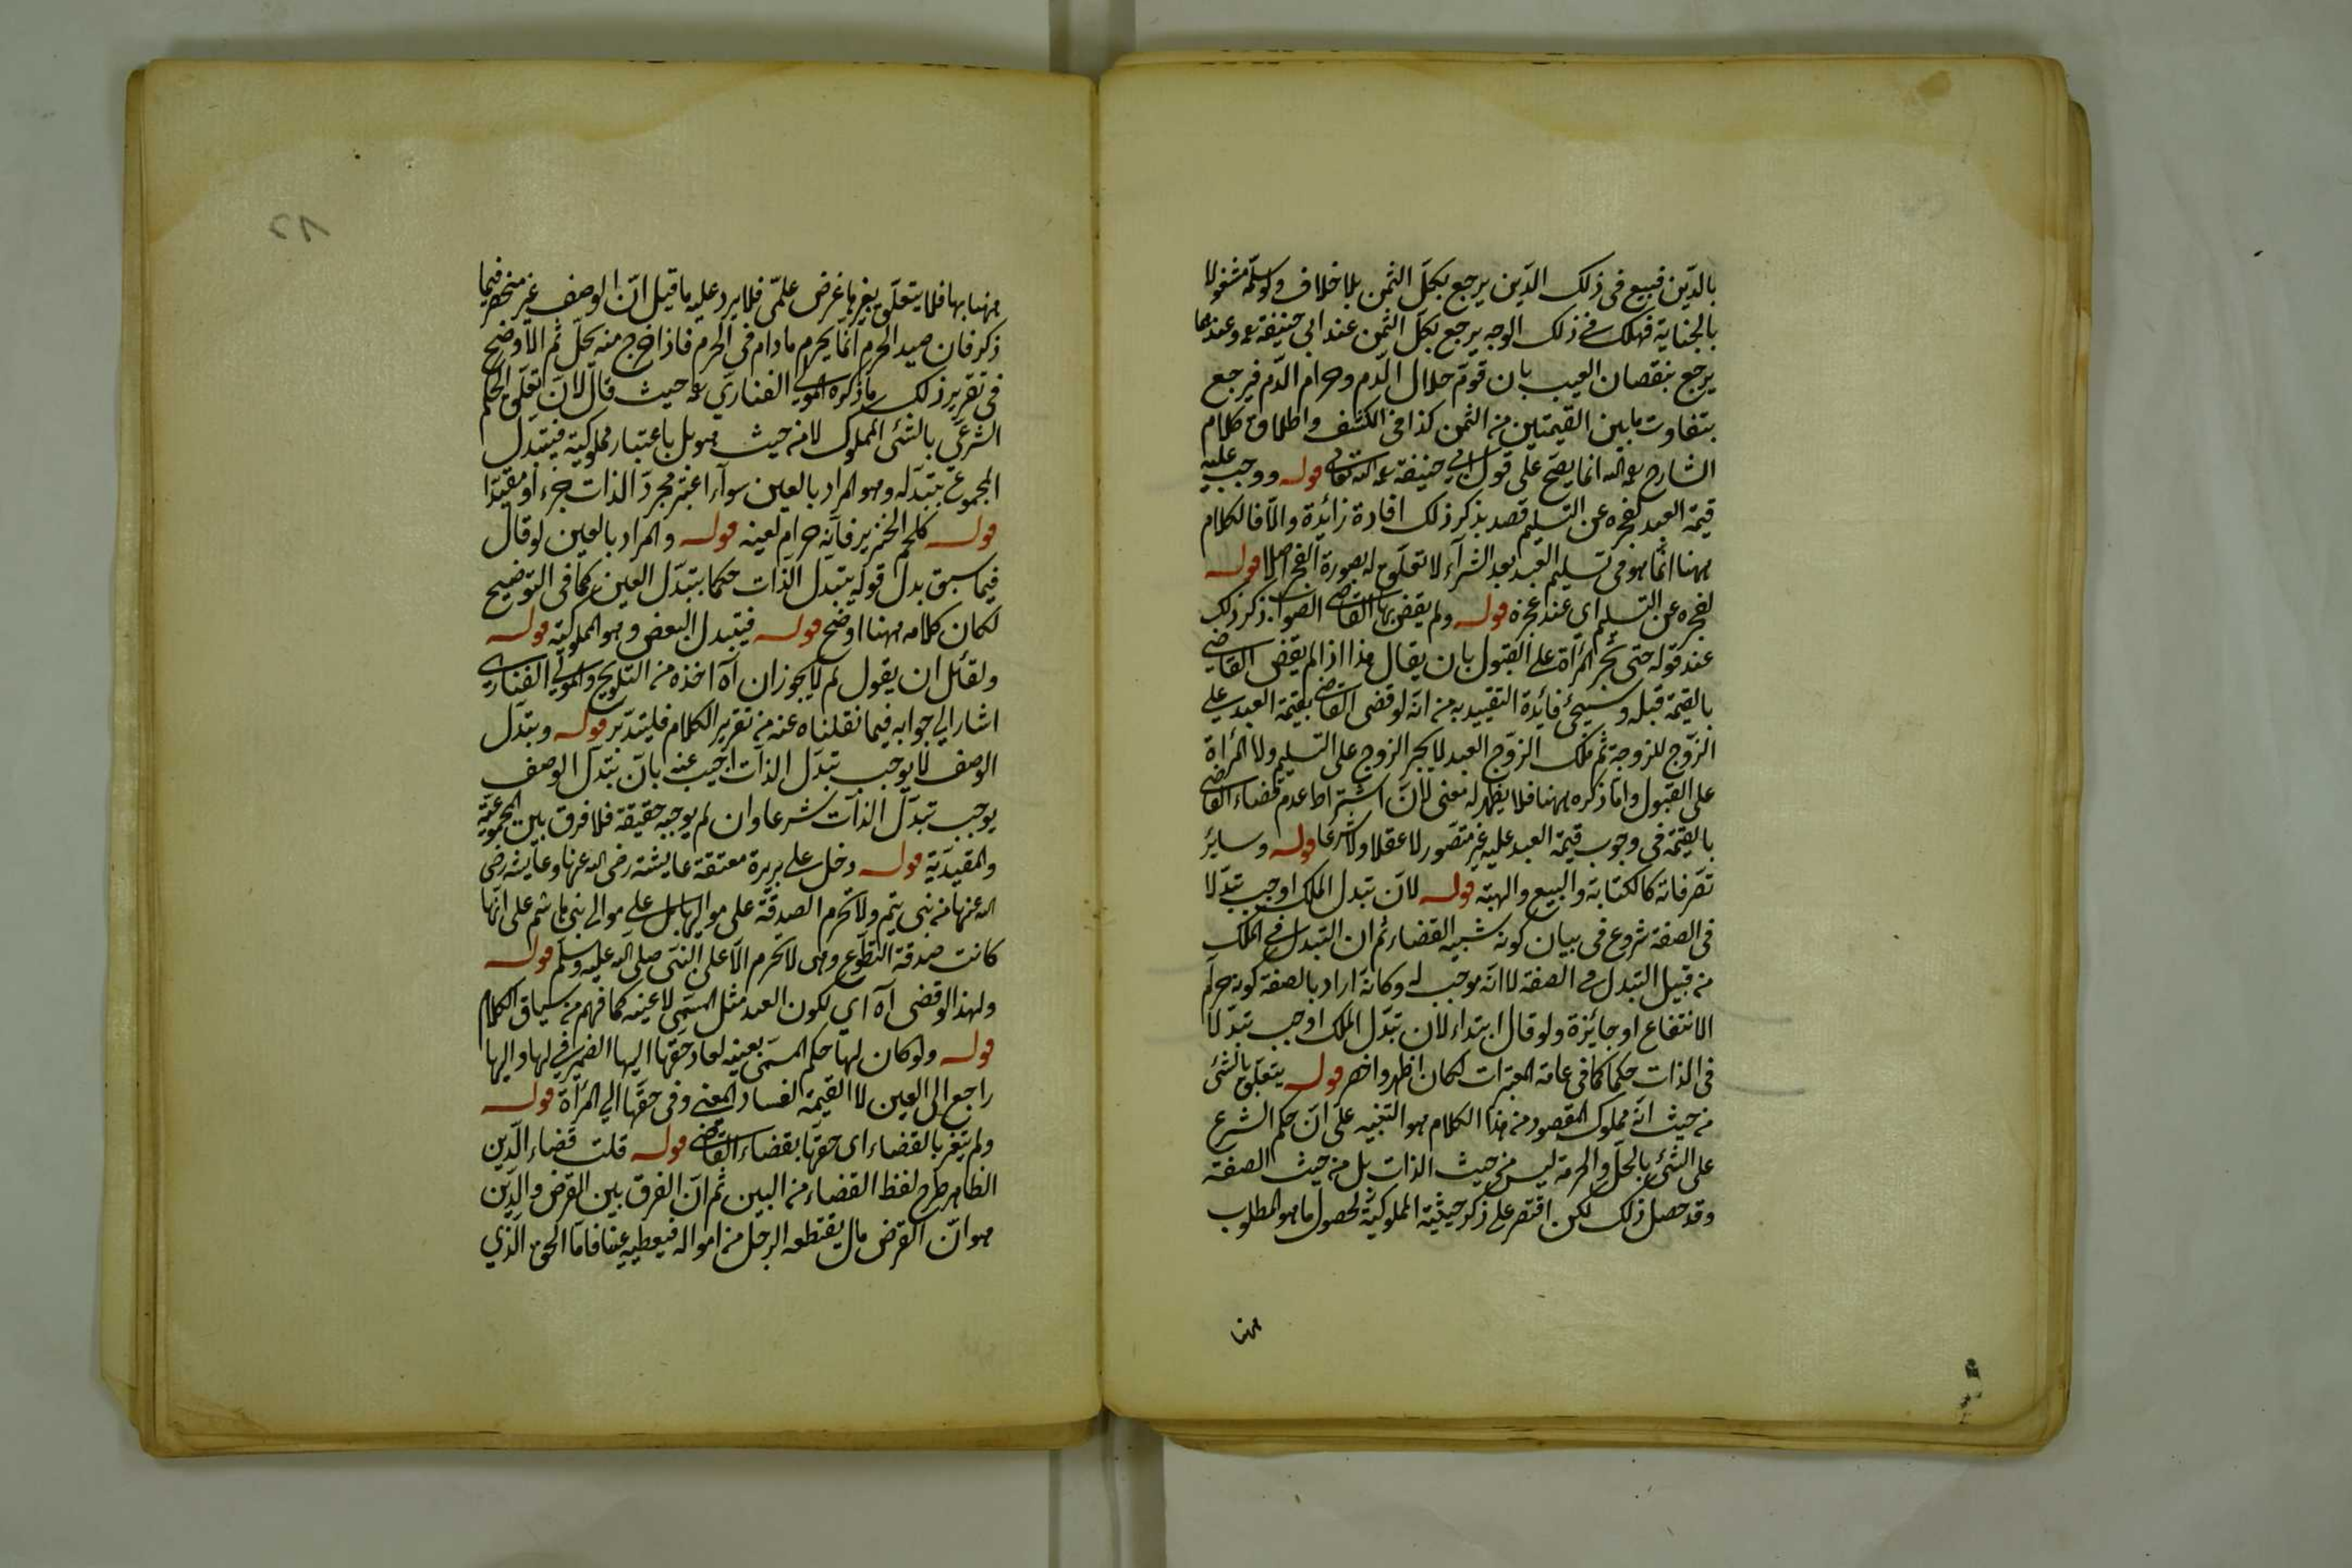 بالدّين فبيع فى ذلك الدّين يرجع بكلّ الثمن بلا خلاف ولو سلّمه مشغولا
بالجناية فهلك فى ذلك الوجه يرجع بكلّ الثمن عند ابى حنيفة رحمه وعندهما
يرجع بنقصان العيب بان قوّم حلال الدّم وحرام الدّم فيرجع
بتفاوت مابين القيمتين من الثمن كذا فى الكشف واطلاق كلام
الشارح رحمه الله انما يصحّ على قول ابى حنيفة رحمه الله تعالى قوله ووجب عليه
قيمة العبد لعجزه عن التسليم قصد بذكر ذلك افادة زائدة والّا فالكلام
ههنا انّما هو فى تسليم العبد بعد الشرآء لا تعلّق له بصورة العجز اصلا قوله
لعجزه عن التسليم اى عند عجزه قوله ولم يقض بها القاضى الصواب ذكر ذلك
عند قوله حتى تجبر المرأة على القبول بان يقال هذا اذا لم يقض القاضى
بالقيمة قبله وسيجئ فائدة التقييد به من انّه لو قضى القاضى بقيمة العبد على
الزّوج للزوجة ثم ملك الزوّج العبد لا يجبر الزوج على التسليم ولا المرأة
على القبول وامّا ذكره ههنا فلا يظهر له معنى لانّ اشتراط عدم قضاء القاضى
بالقيمة فى وجوب قيمة العبد عليه غير متصّور لا عقلا ولا شرعا قوله وسائر
تصّرفاته كالكتابة والبيع والهبة قوله لانّ تبدل الملك اوجب تبدّلا
فى الصفة شروع فى بيان كونه شبيه القضاء ثم ان التبدل فى الملك
من قبيل التبدل فى الصفة لا انّه موجب له وكانّه اراد بالصفة كونه حرام
الانتفاع او جائزة ولو قال ابتداء لان تبدّل الملك اوجب تبدّلا
فى الذات حكما كما فى عامة المعتبرات لكان اظهر واخصر قوله يتعلّق بالشئ
من حيث انّه مملوك المقصود من هذا الكلام هو التنبيه على انّ حكم الشرع
على الشئ بالحلّ والحرمة ليس من حيث الذات بل من حيث الصفة
وقد حصل ذلك لكن اقتصر على ذكر حيثية المملوكيّة لحصول ما هو المطلوب
ههنا
١٢
ههنا بها فلا يتعلّق بغيرها غرض علمّى فلا يرد عليه ما قيل انّ الوصف غير منحصر فيما
ذكر فان صيد الحرم انّما يحرم مادام فى الحرم فاذا خرج منه يحلّ ثم الاوضح
فى تقرير ذلك ما ذكره المولى الفنارى رحمه حيث قال لانّ تعلّق الحكم
الشرعّى بالشئ المملوك لا من حيث هو بل باعتبار مملوكيّة فيتبدل
المجموع بتبدّله وهو المراد بالعين سوآء اعتبر مجرّد الذات جزء او مقيّدا
قوله كلحم الخنزير فانّه حرام لعينه قوله والمراد بالعين لو قال
فيما سبق بدل قوله بتبدل الذات حكما بتبدّل العين كما فى التوضيح
لكان كلامه ههنا اوضح قوله فيتبدل البعض وهو المملوكيّة قوله
ولقائل ان يقول لم لا يجوز ان آه اخذه من التلويح والمولى الفنارى
اشار الى جوابه فيما نقلناه عنه من تقرير الكلام فليتدّبر قوله وبتدّل
الوصف لا يوجب تبدّل الذات اجيب عنه بانّ تبدّل الوصف
يوجب تبدّل الذات شرعا وان لم يوجبه حقيقة فلا فرق بين المجموعيّة
والمقيديّة قوله دخل على بريرة معتقة عايشة رضى الله عنها وعايشة رضى
الله عنها من بنى تيم ولا تحرم الصدقة على مواليها بل على موالى بنى هاشم على انّها
كانت صدقة التطّوع وهى لا تحرم الّا على النبّى صلى الله عليه وسلم قوله
ولهذا لو قضى آه اى لكون العبد مثل المسمّى لا عينه كما فهم من سياق الكلام
قوله ولو كان لها حكم المسمّى بعينه لعاد حقّها اليها الضمير فى لها واليها
راجع الى العين لا القيمة لفساد المعنى وفى حقّها الى المرأة قوله
ولم يتغّير بالقضاء اى حقّها بقضاء القاضى قوله قلت قضاء الّدين
الظاهر طرح لفظ القضاء من البين ثم انّ الفرق بين القرض والدّين
هو انّ القرض مال يقتطعه الرجل من امواله فيعطيه عينا فامّا الحق الّذى